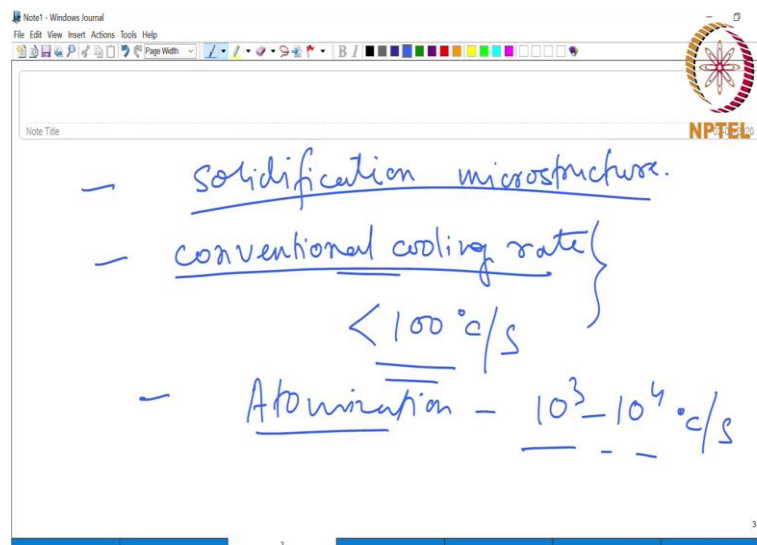 Note1 - Windows Journal
File Edit View Insert Actions Tools Help
Page Width
B I
Note Title
NPTEL
- solidification microstructure.
- conventional cooling rate
< 100 °c/s
- Atomization - 10³ - 10⁴ °c/s
3